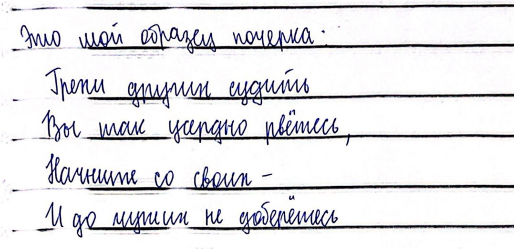 Это мой образец почерка:
Грехи других судить
Вы так усердно рвётесь,
Начните со своих –
И до чужих не доберётесь